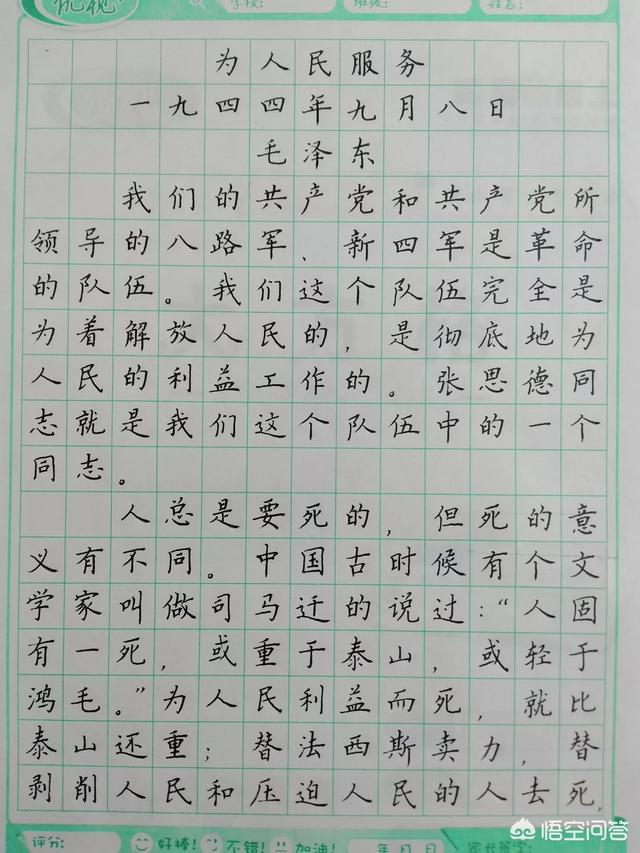 优视
学校: 班级: 姓名:
为人民服务
一九四四年九月八日
毛泽东
我们的共产党和共产党所
领导的八路军、新四军是革命
的队伍。我们这个队伍完全是
为着解放人民的，是彻底地为
人民的利益工作的。张思德同
志就是我们这个队伍中的一个
同志。
人总是要死的，但死的意
义有不同。中国古时候有个文
学家叫做司马迁的说过：“人固
有一死，或重于泰山，或轻于
鸿毛。”为人民利益而死，就比
泰山还重；替法西斯卖力，替
剥削人民和压迫人民的人去死，
评分: 好棒! 不错! 加油! 年 月 日 家长签字:
悟空问答